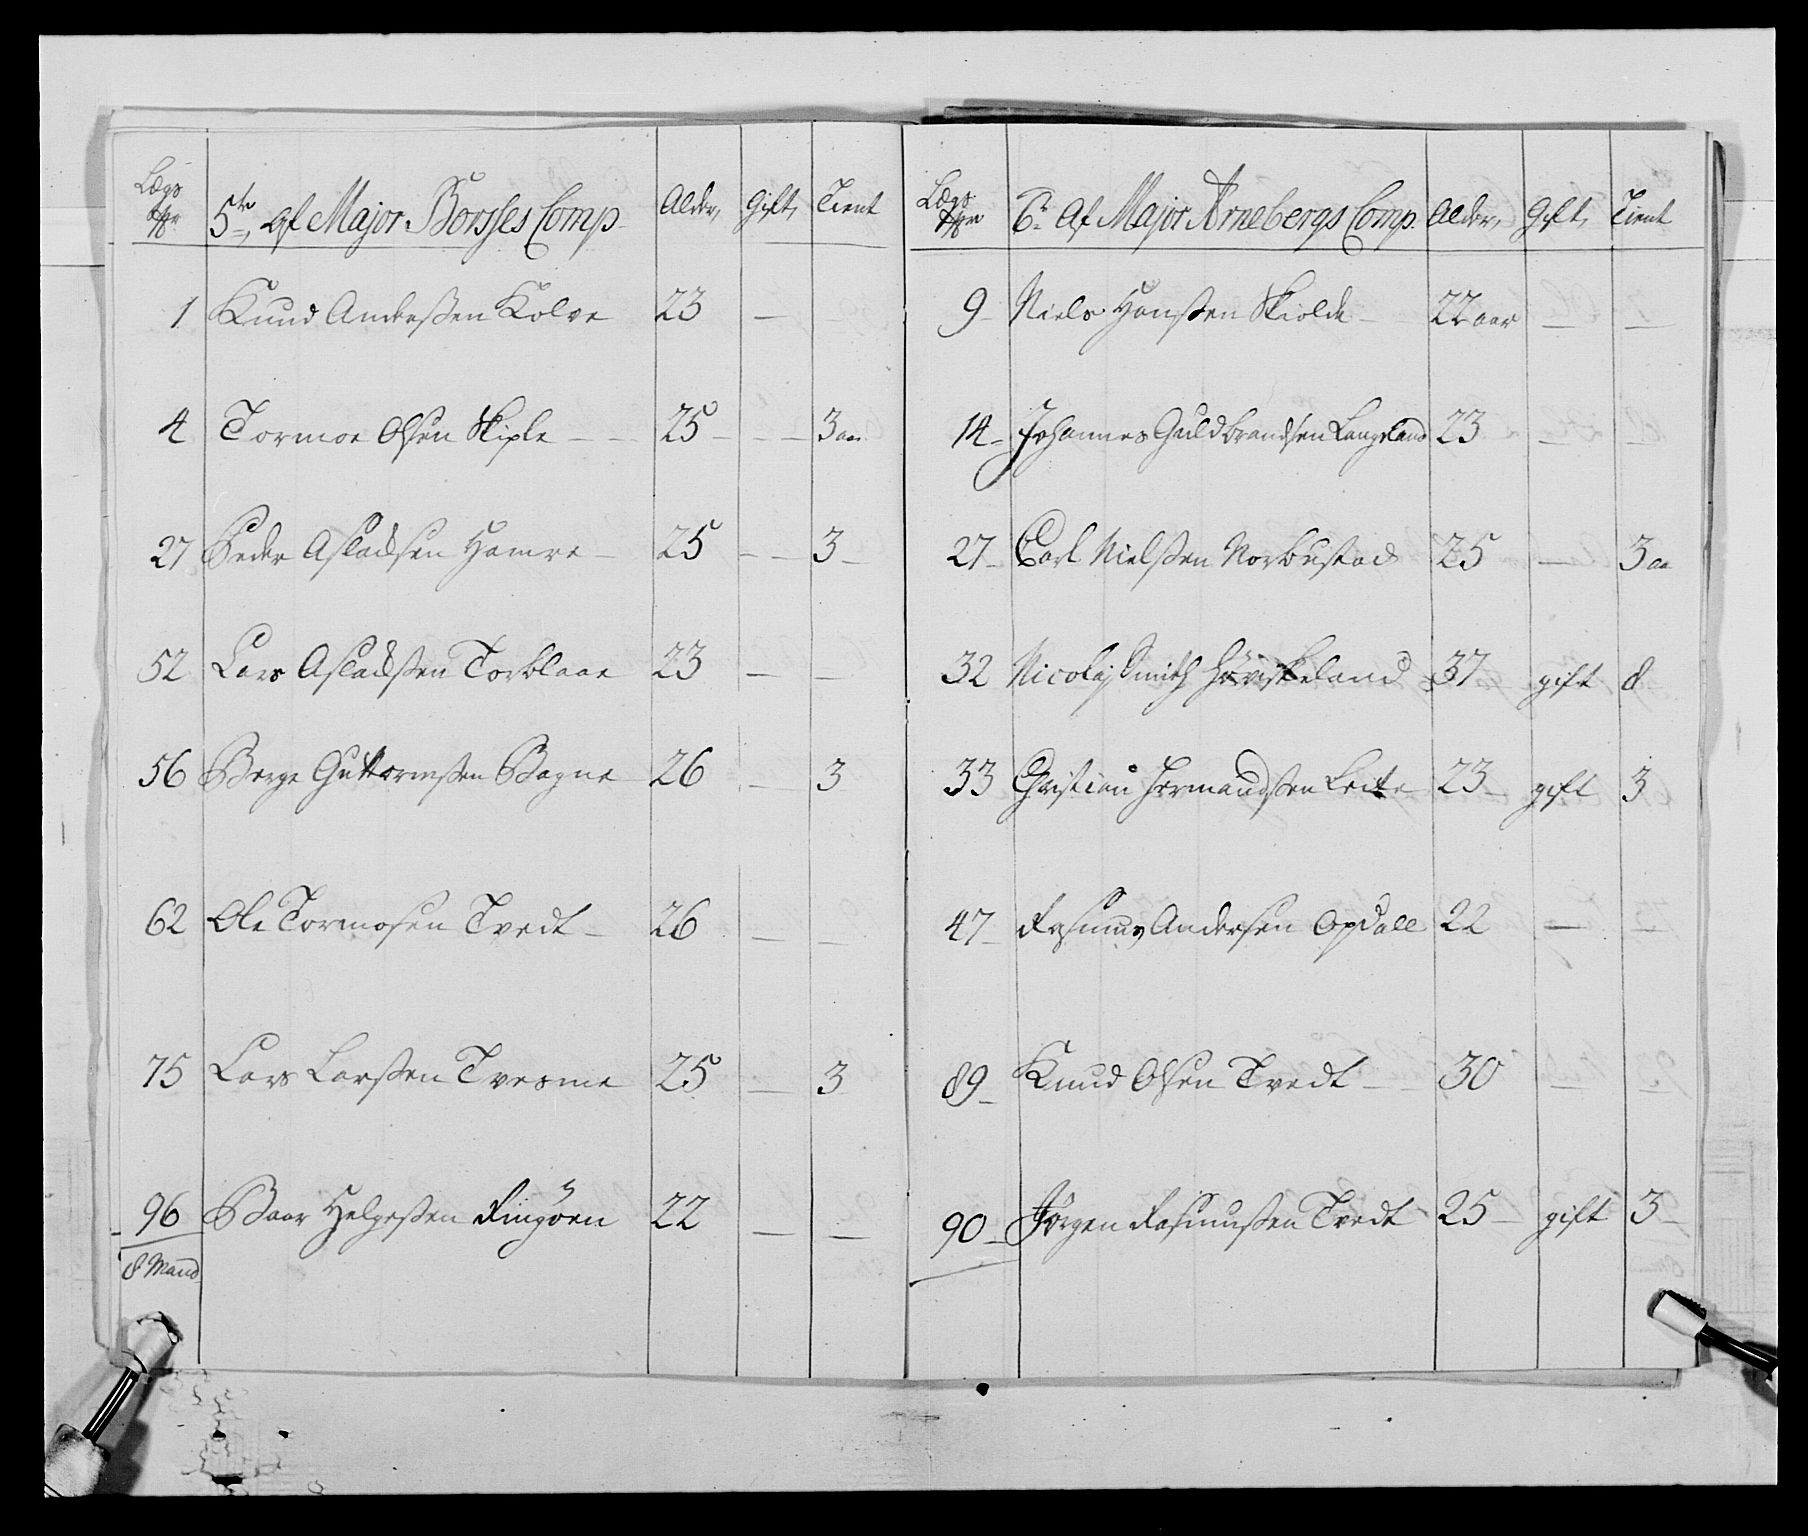 Lægs Nr 5te af Major Borsses Comp Alder, Gift, Tient
1 Knud Andersen Kolve 23 —
4 Tormoe Olsen Skiple — 25 — — 3 aar
27 Peder Asladsen Hamre — 25 — — 3 —
52 Lars Asladsen Torblaae 23 — —
56 Børge Guttormsen Bagne 26 — 3
62 Ole Tormosen Tvedt — 26 — —
75 Lars Larssen Tvesme 25 — 3
96 Baar Helgessen Ringöen 22 — —
8 Mand
Lægs Nr 6te Af Major Arnebergs Comp. Alder, Gift, Tient
9 Niels Hanssen Skiolde — 22 aar — —
14 — Johannes Guldbrandsen Langeland 23 — —
27 — Carl Nielssen Norbustad 25 — 3 aa
32 Nicolaj Smith Höviskeland 37 gift 8
33 Christian Hermandssen Leite 23 — gift 3
47 — Rasmus Andersen Opdall 22 —
89 — Knud Olsen Tvedt — 30 — —
90 — Jörgen Rasmussen Tvedt 25 — gift 3 —